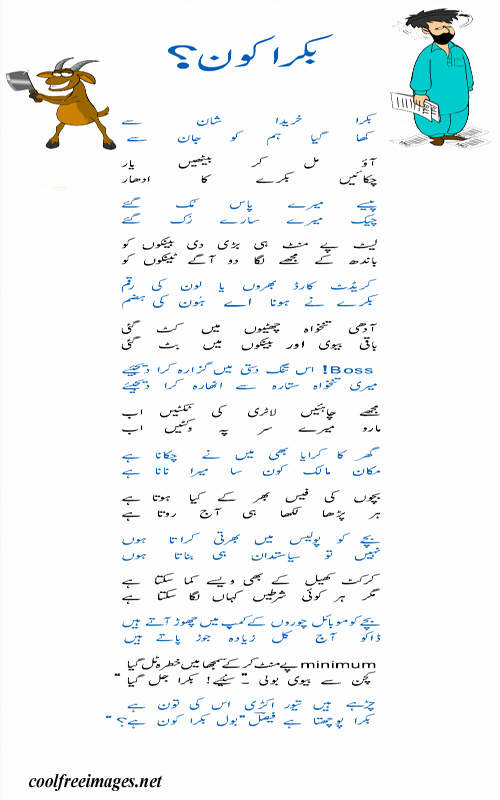 بکرا کون؟
بکرا خریدا شان سے
کھا گیا ہم کو جان سے
آؤ مل کر بیٹھیں یار
چکائیں بکرے کا ادھار
پیسے میرے پاس تک گئے
چیک میرے سارے رُک گئے
لیٹ پے منٹ ہی بڑی دی بینکوں کو
باندھ کے مجھے لگا دو آگے ٹینکوں کو
کریڈٹ کارڈ بھروں یا لون کی رقم
بکرے نے ہونا اے ہُون کی ہضم
آدھی تنخواہ چھٹیوں میں کٹ گئی
باقی بیوی اور بینکوں میں بٹ گئی
Boss! اس تنگ دستی میں گزارہ کرا دیجیئے
میری تنخواہ ستارہ سے اٹھارہ کرا دیجیئے
مجھے چاہئیں لاٹری کی ٹکٹیں اب
مارو میرے سر پہ وکٹیں اب
گھر کا کرایا بھی میں نے چکانا ہے
مکان مالک کون سا میرا نانا ہے
بچوں کی فیس بھر کے کیا ہوتا ہے
ہر پڑھا لکھا ہی آج روتا ہے
بچے کو پولیس میں بھرتی کراتا ہوں
نہیں تو سیاستدان ہی بناتا ہوں
کرکٹ کھیل کے بھی ویسے کما سکتا ہے
مگر ہر کوئی شرطیں کہاں لگا سکتا ہے
بچے کو موبائل چوروں کے کیمپ میں چھوڑ آتے ہیں
ڈاکو آج کل زیادہ جوڑ پاتے ہیں
minimum پے منٹ کر کے سمجھا میں خطرہ ٹل گیا
کچن سے بیوی بولی _ "سنیے! بکرا جل گیا"
چڑہے ہیں تیور اکڑی اس کی تون ہے
بکرا پوچھتا ہے فیصل "بول بکرا کون ہے؟"
coolfreeimages.net